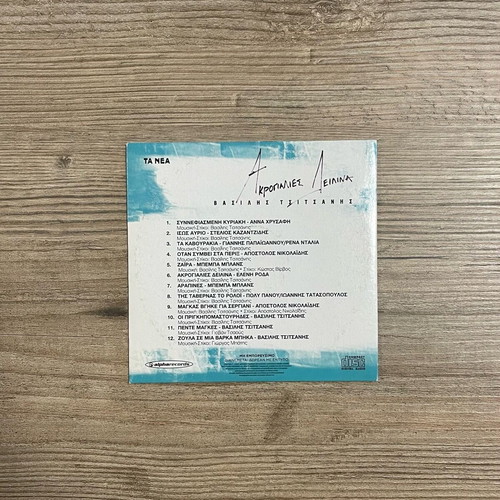 ΤΑ ΝΕΑ
ΑΚΡΟΓΙΑΛΙΕΣ ΔΕΙΛΙΝΑ
ΒΑΣΙΛΗΣ ΤΣΙΤΣΑΝΗΣ
1. ΣΥΝΝΕΦΙΑΣΜΕΝΗ ΚΥΡΙΑΚΗ - ΑΝΝΑ ΧΡΥΣΑΦΗ
Μουσική-Στίχοι: Βασίλης Τσιτσάνης
2. ΙΣΩΣ ΑΥΡΙΟ - ΣΤΕΛΙΟΣ ΚΑΖΑΝΤΖΙΔΗΣ
Μουσική-Στίχοι: Βασίλης Τσιτσάνης
3. ΤΑ ΚΑΒΟΥΡΑΚΙΑ - ΓΙΑΝΝΗΣ ΠΑΠΑΪΩΑΝΝΟΥ/ΡΕΝΑ ΝΤΑΛΙΑ
Μουσική-Στίχοι: Βασίλης Τσιτσάνης
4. ΟΤΑΝ ΣΥΜΒΕΙ ΣΤΑ ΠΕΡΙΞ - ΑΠΟΣΤΟΛΟΣ ΝΙΚΟΛΑΪΔΗΣ
Μουσική-Στίχοι: Βασίλης Τσιτσάνης
5. ΖΑΪΡΑ - ΜΠΕΜΠΑ ΜΠΛΑΝΣ
Μουσική: Βασίλης Τσιτσάνης • Στίχοι: Κώστας Βίρβος
6. ΑΚΡΟΓΙΑΛΙΕΣ ΔΕΙΛΙΝΑ - ΕΛΕΝΗ ΡΟΔΑ
Μουσική-Στίχοι: Βασίλης Τσιτσάνης
7. ΑΡΑΠΙΝΕΣ - ΜΠΕΜΠΑ ΜΠΛΑΝΣ
Μουσική-Στίχοι: Βασίλης Τσιτσάνης
8. ΤΗΣ ΤΑΒΕΡΝΑΣ ΤΟ ΡΟΛΟΪ - ΠΟΛΥ ΠΑΝΟΥ/ΙΩΑΝΝΗΣ ΤΑΤΑΣΟΠΟΥΛΟΣ
Μουσική-Στίχοι: Βασίλης Τσιτσάνης
9. ΜΑΓΚΑΣ ΒΓΗΚΕ ΓΙΑ ΣΕΡΓΙΑΝΙ - ΑΠΟΣΤΟΛΟΣ ΝΙΚΟΛΑΪΔΗΣ
Μουσική: Βασίλης Τσιτσάνης • Στίχοι: Απόστολος Νικολαΐδης
10. ΟΙ ΠΡΙΓΚΗΠΟΜΑΣΤΟΥΡΗΔΕΣ - ΒΑΣΙΛΗΣ ΤΣΙΤΣΑΝΗΣ
Μουσική-Στίχοι: Βασίλης Τσιτσάνης
11. ΠΕΝΤΕ ΜΑΓΚΕΣ - ΒΑΣΙΛΗΣ ΤΣΙΤΣΑΝΗΣ
Μουσική-Στίχοι: Γιοβάν Τσαούς
12. ΖΟΥΛΑ ΣΕ ΜΙΑ ΒΑΡΚΑ ΜΠΗΚΑ - ΒΑΣΙΛΗΣ ΤΣΙΤΣΑΝΗΣ
Μουσική-Στίχοι: Γιώργος Μπάτης
alpharecords